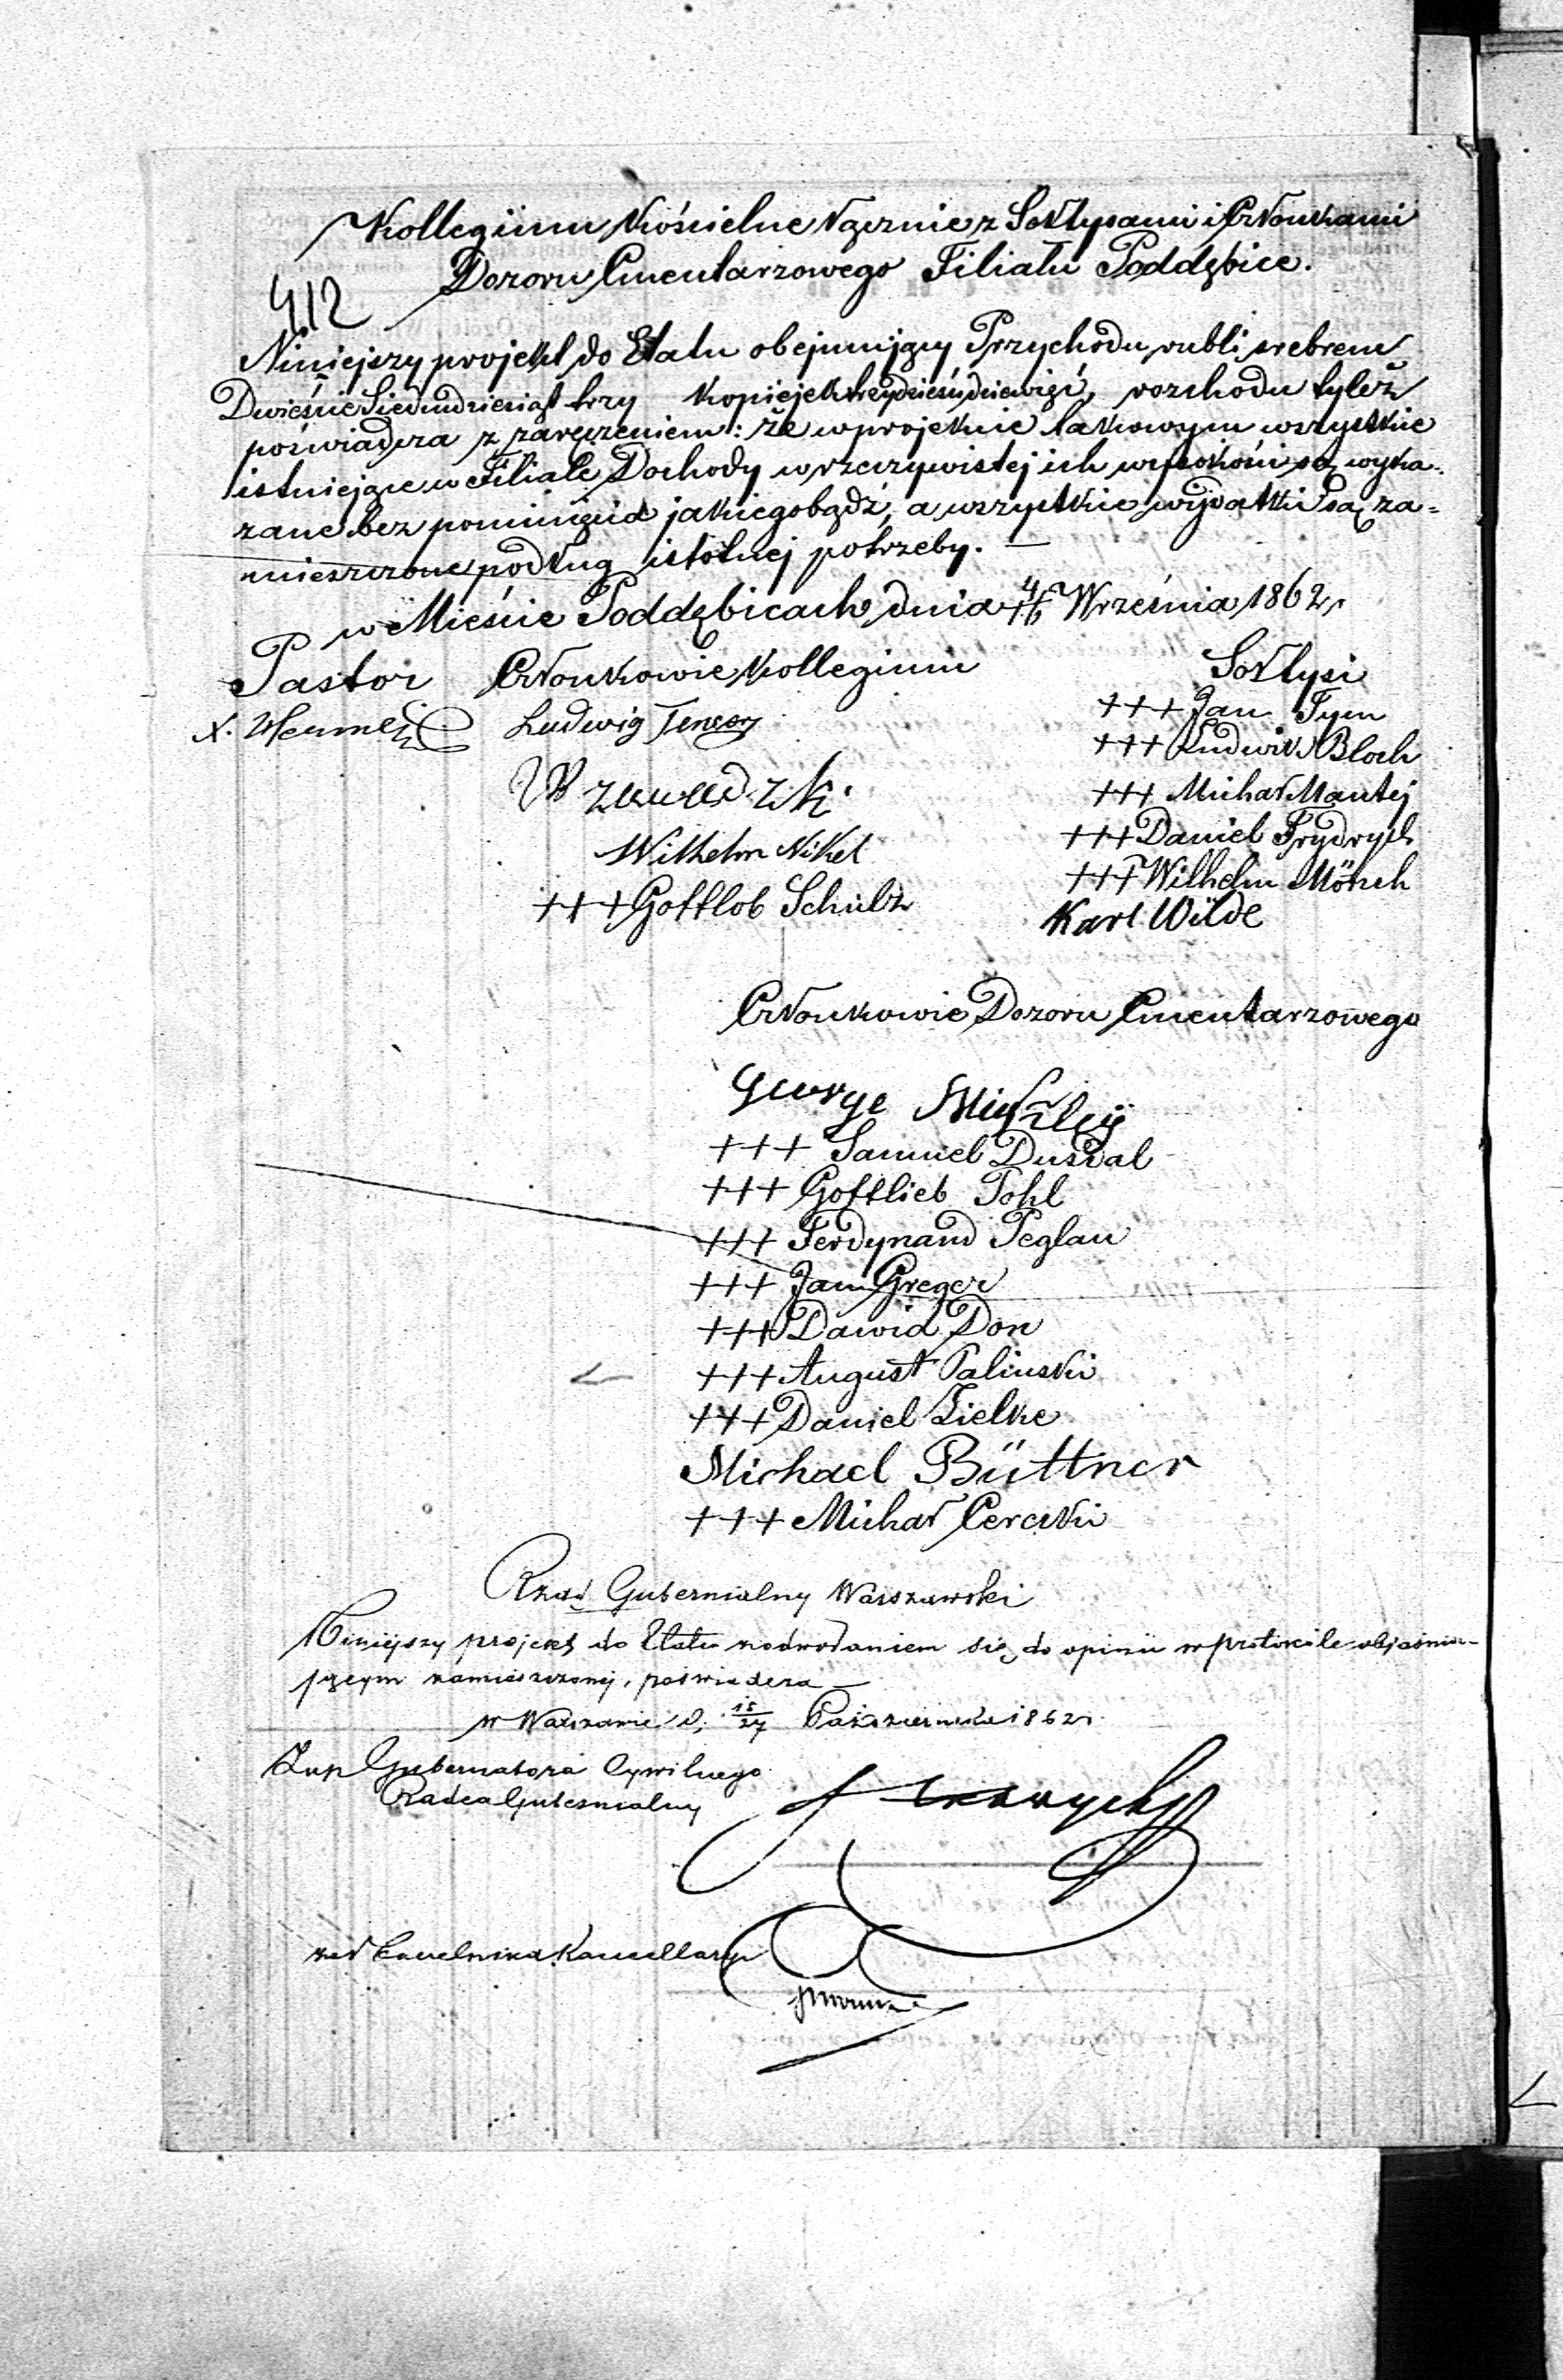 Kollegium Kościelne łącznie z Sołtysami i Członkami
Dozoru Cmentarzowego Filiału Poddębice.
412
Niniejszy projekt do Etatu obejmujący Przychodu rubli srebrem
Dwieście Siedmdziesiąt trzy kopiejek trzydzieści dziewięć, rozchodu tyleż
poświadcza z zaręczeniem: że w projekcie takowym wszystkie
istniejące w Filiale Dochody w rzeczywistej ich wysokości są wyka-
zane bez pominięcia jakiegobądź, a wszystkie wydatki są za=
mieszczone podług istotnej potrzeby. —
w Mieście Poddębicach dnia 4/16 Września 1862 r
Pastor Członkowie Kollegium Sołtysi
X. Ludwig
+++ Jan Tym
+++ Ludwik Bloch
+++ Michał Mantej
Wilhelm Nikel
+++ Daniel Frydrych
+++ Gottlob Schulz
+++ Wilhelm Mönch
Karl Wilde
Członkowie Dozoru Cmentarzowego
George
+++ Samuel Dusdal
+++ Gottlieb Pohl
+++ Ferdynand Peglau
+++ Jan Greger
+++ Dawid Don
+++ August Palinski
+++ Daniel Zielke
Michael Büttner
+++ Michał
Rząd Gubernialny Warszawski
Niniejszy projekt do Etatu z odwołaniem się do opinii w protokóle objaśnia-
jącym zamieszczonej, poświadcza —
w Warszawie d. 15/27 Października 1862 r.
Zup Gubernatora Cywilnego
Radca Gubernialny
Naczelnika Kancellaryi